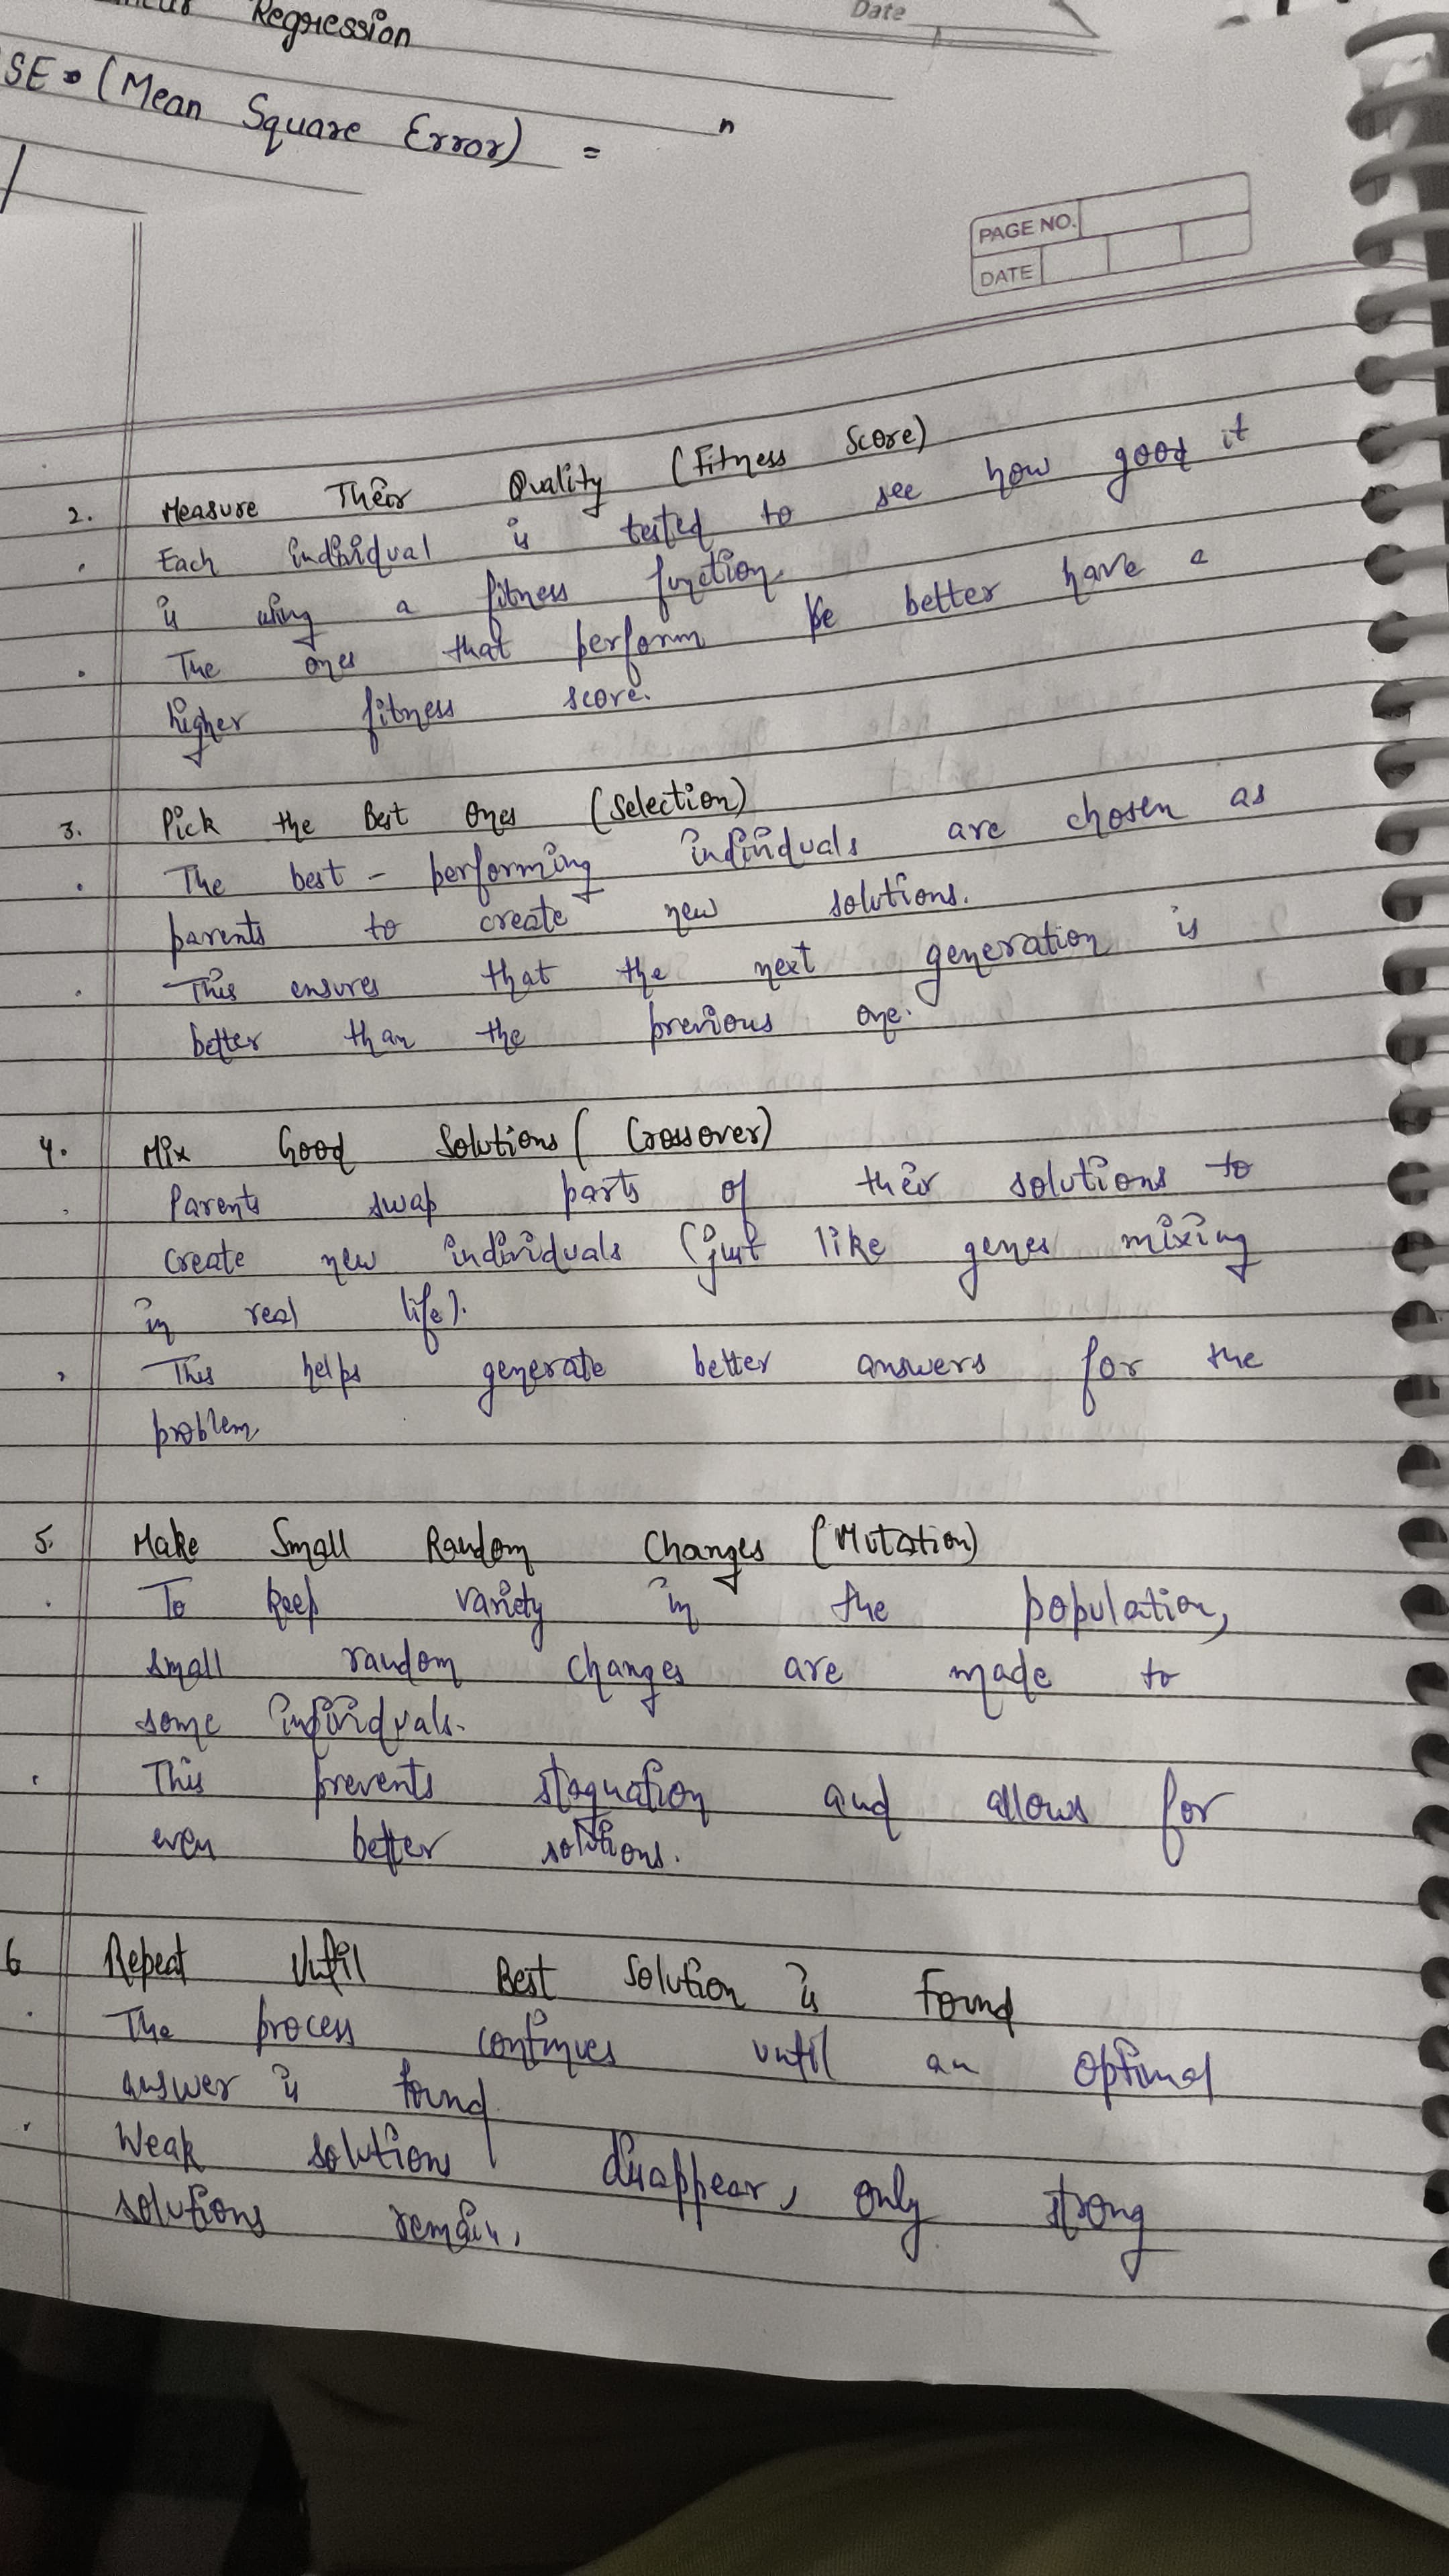 Regression
Date
SE (Mean Square Error) =
n
PAGE NO.
DATE
2. Measure Their Quality (Fitness Score)
Each individual is tested to see how good it
is using a fitness function.
The ones that perform better have a
higher fitness score.
3. Pick the Best Ones (Selection)
The best - performing individuals are chosen as
parents to create new solutions.
This ensures that the next generation is
better than the previous one.
4. Mix Good Solutions (Crossover)
Parents swap parts of their solutions to
create new individuals (just like genes mixing
in real life).
This helps generate better answers for the
problem.
5. Make Small Random Changes (Mutation)
To keep variety in the population,
small random changes are made to
some individuals.
This prevents stagnation and allows for
even better solutions.
6 Repeat Until Best Solution is Found
The process continues until an optimal
answer is found.
Weak solutions disappear, only strong
solutions remain.